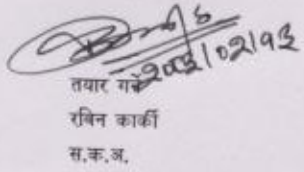 २०८३/०२/१३
तयार गर्ने
रबिन कार्की
स.क.अ.